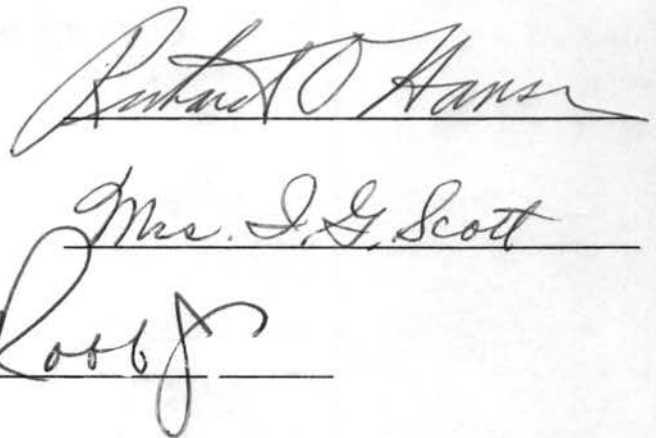 Richard O Hansen
Mrs. I. G. Scott
Robb Jr